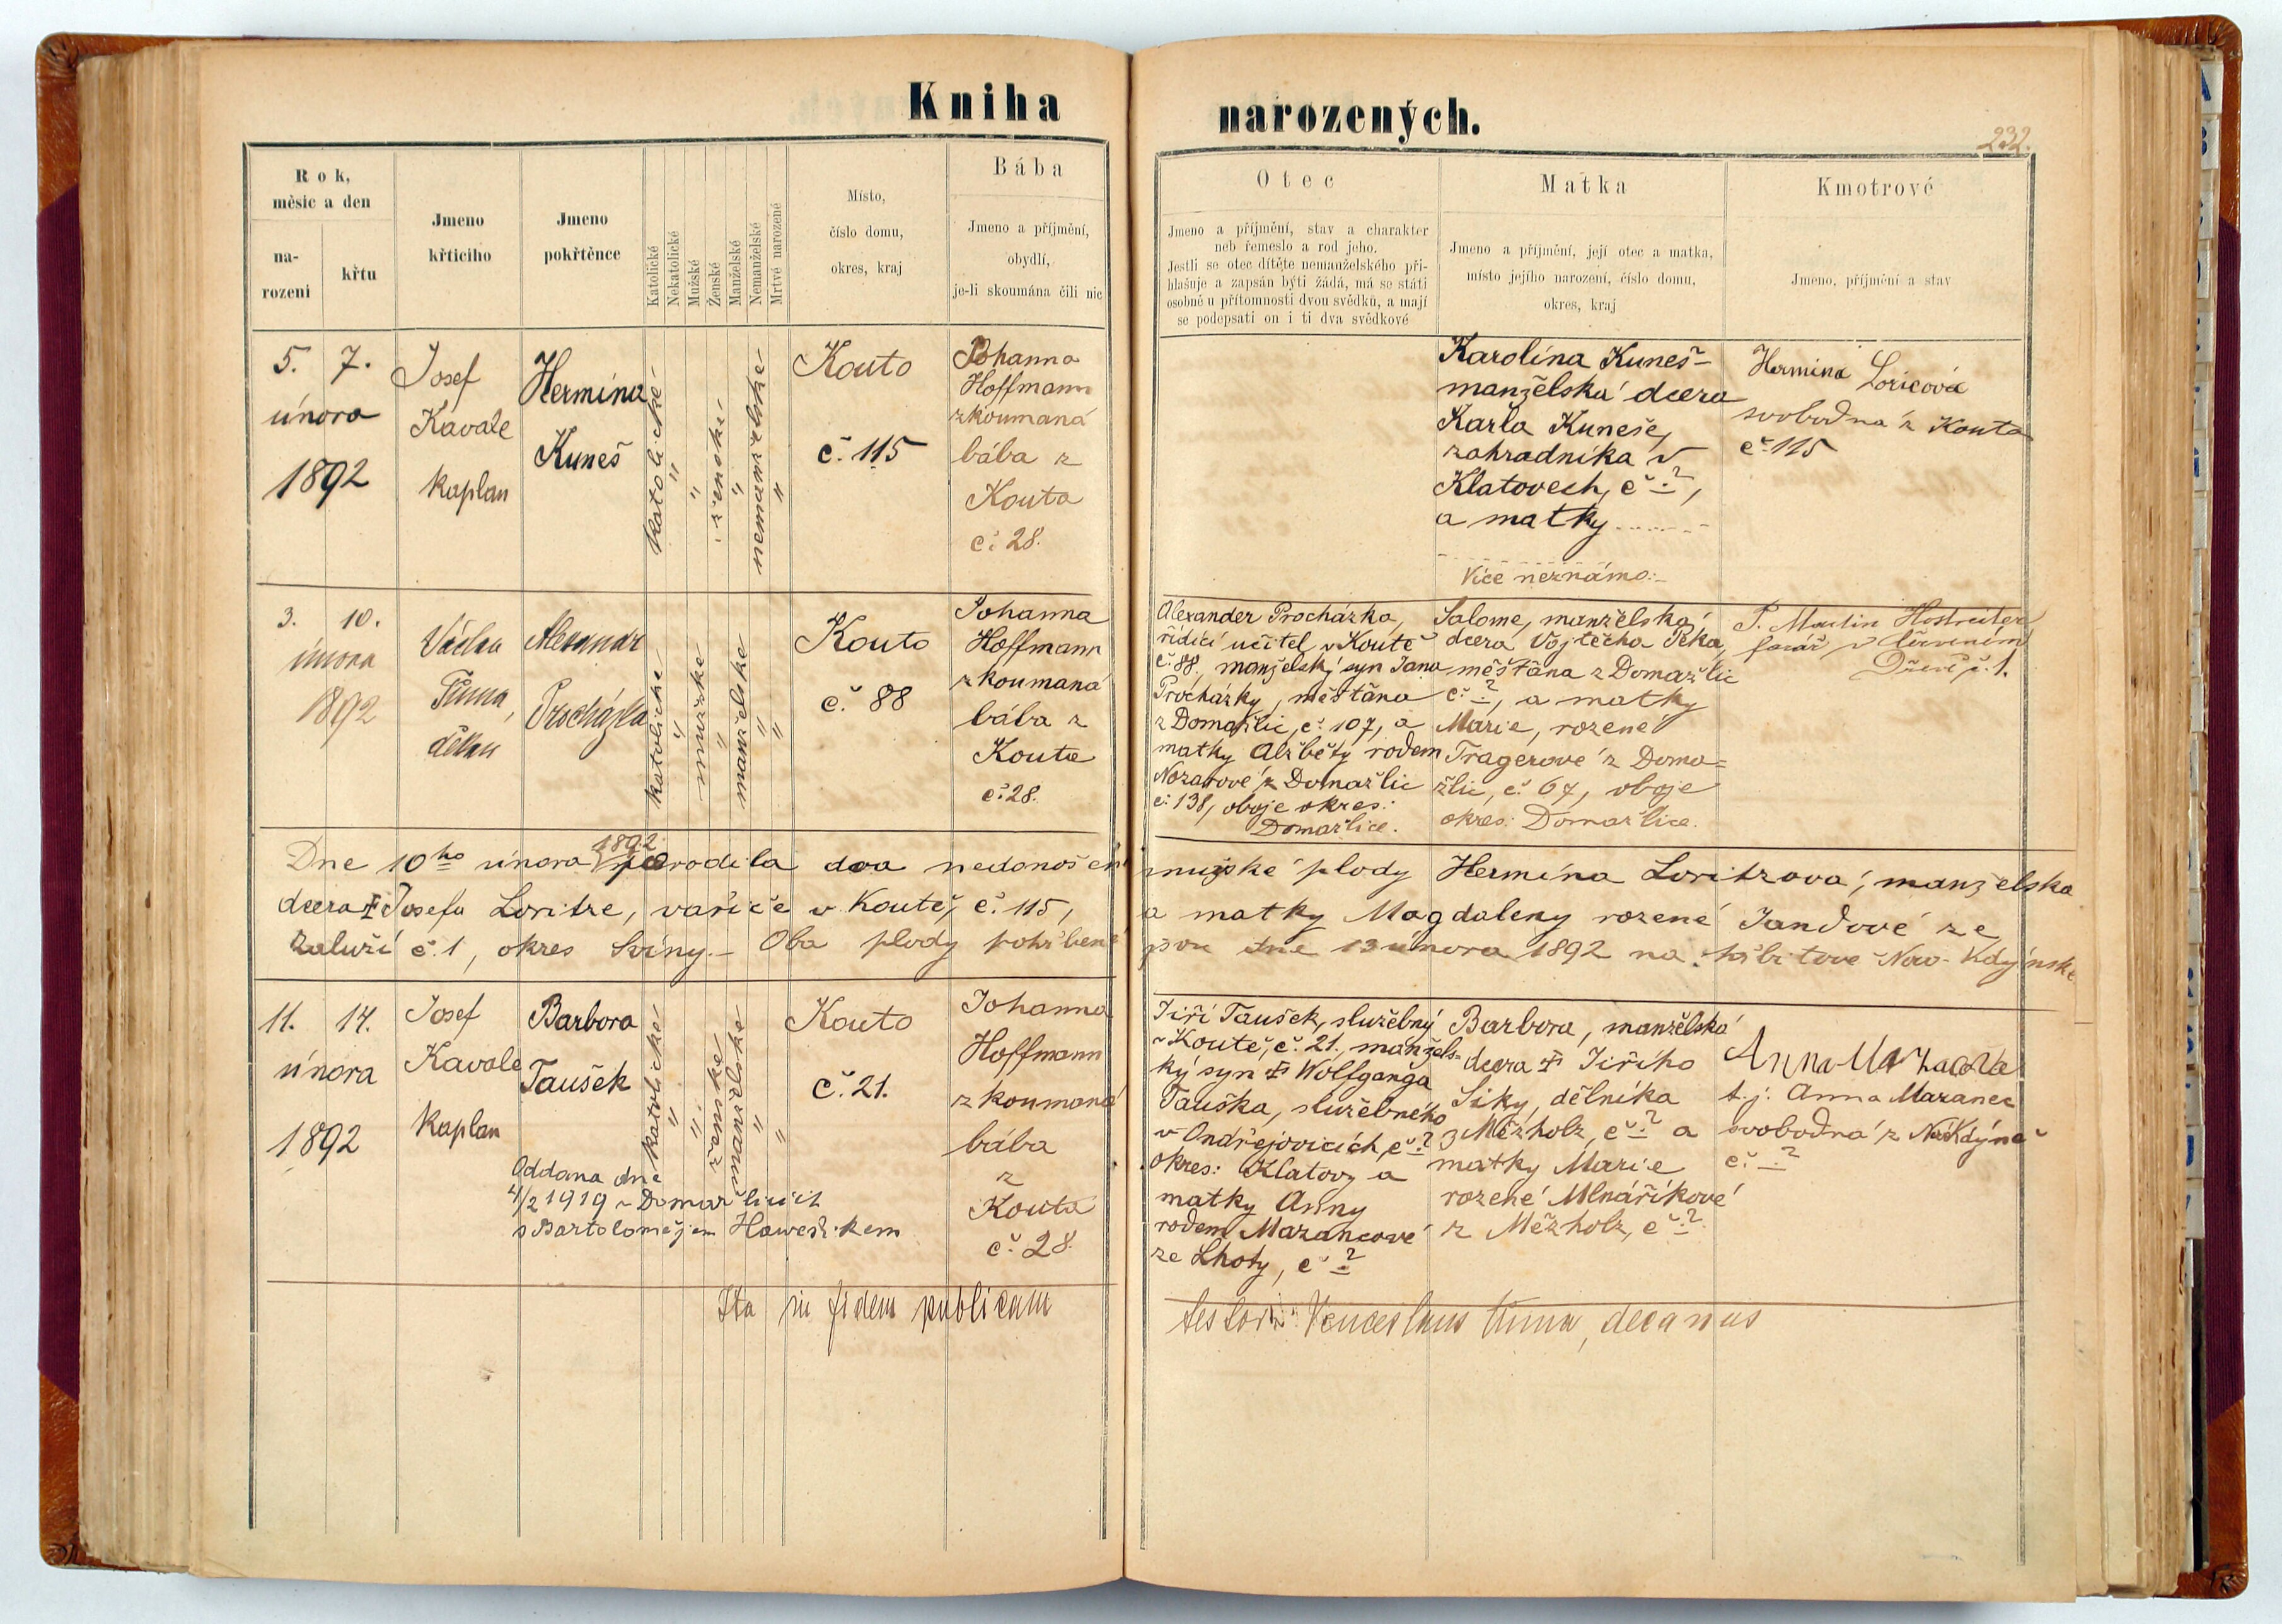 Kniha narozených.
232.
Rok, měsíc a den
na-
rozeni
křtu
Jmeno
křticího
Jmeno
pokřtěnce
Katolické
Nekatolické
Mužské
Ženské
Manželské
Nemanželské
Mrtvé narozené
Místo,
číslo domu,
okres, kraj
Bába
Jmeno a příjmění,
obydlí,
je-li skoumána čili nic
Otec
Jmeno a příjmění, stav a charakter
neb řemeslo a rod jeho.
Jestli se otec dítěte nemanželského při-
hlašuje a zapsán býti žádá, má se státi
osobně u přítomnosti dvou svědků, a mají
se podepsati on i ti dva svědkové
Matka
Jmeno a příjmění, její otec a matka,
místo jejího narození, číslo domu,
okres, kraj
Kmotrové
Jmeno, příjmění a stav
5. 7.
února
1892
Josef
Kavale
kaplan
Hermina
Kuneš
katolické
ženské
nemanželské
Kouto
č. 115
Johanna
Hoffmann
zkoumaná
bába z
Kouta
č. 28.
Karolina Kuneš
manželská dcera
Karla Kuneše,
zahradníka v
Klatovech, č. ?,
a matky
Více neznámo.
Hermina Loricová
svobodná z Kouta
č 115
3. 10.
února
1892
Václav
děkan
Alexandr
Procházka
katolické
mužské
manželské
Kouto
č. 88
Johanna
Hoffmann
zkoumaná
bába z
Kouta
č. 28.
Alexander Procházka,
řídící učitel v Koutě
č. 88, manželský syn Jana
Procházky, měštana
z Domažlic, č. 107, a
matky Alžběty rodem
z Domažlic
č. 138, oboje okres:
Domažlice.
Salome, manželská
dcera Vojtěcha Peka,
měštana z Domažlic
č. ?, a matky
Marie, rozené
Tragerové z Doma=
žlic, č. 67, oboje
okres: Domažlice.
P. Martin
farář v Červeném
č. 1.
Dne 10ho února 1892 porodila dva nedonošené mužské plody Hermína Loritzova, manželská
dcera † Josefa Loritze, vařiče v Koutě, č. 115, a matky Magdaleny rozené Jandové ze
Zaluží č. 1, okres Sviny.– Oba plody pohřbené jsou dne 13 února 1892 na hřbitově Novo-Kdýnské
11. 14.
února
1892
Josef
Kavale
kaplan
Barbora
Taušek
Oddana dne
4/2 1919 v Domažlicích
s Bartolomějem
katolické
ženské
manželské
Kouto
č. 21.
Johanna
Hoffmann
zkoumaná
bába
z
Kouta
č. 28.
Jiří Taušek, služebný
v Koutě, č. 21., manžels=
ký syn † Wolfganga
Tauška, služebného
v Ondřejovicích, č. ?
okres: Klatovy a
matky Anny
rodem Mazancové
ze Lhoty, č. ?
Barbora, manželská
dcera † Jiřího
Siky, dělníka
z Mězholz, č. ? a
matky Marie
rozené Mlnáříkové
z Mězholz, č. ?
Anna
t. j. Anna Mazanec
svobodná z
č. ?
Ita in fidem publicam testor: Venceslaus Tůma, decanus